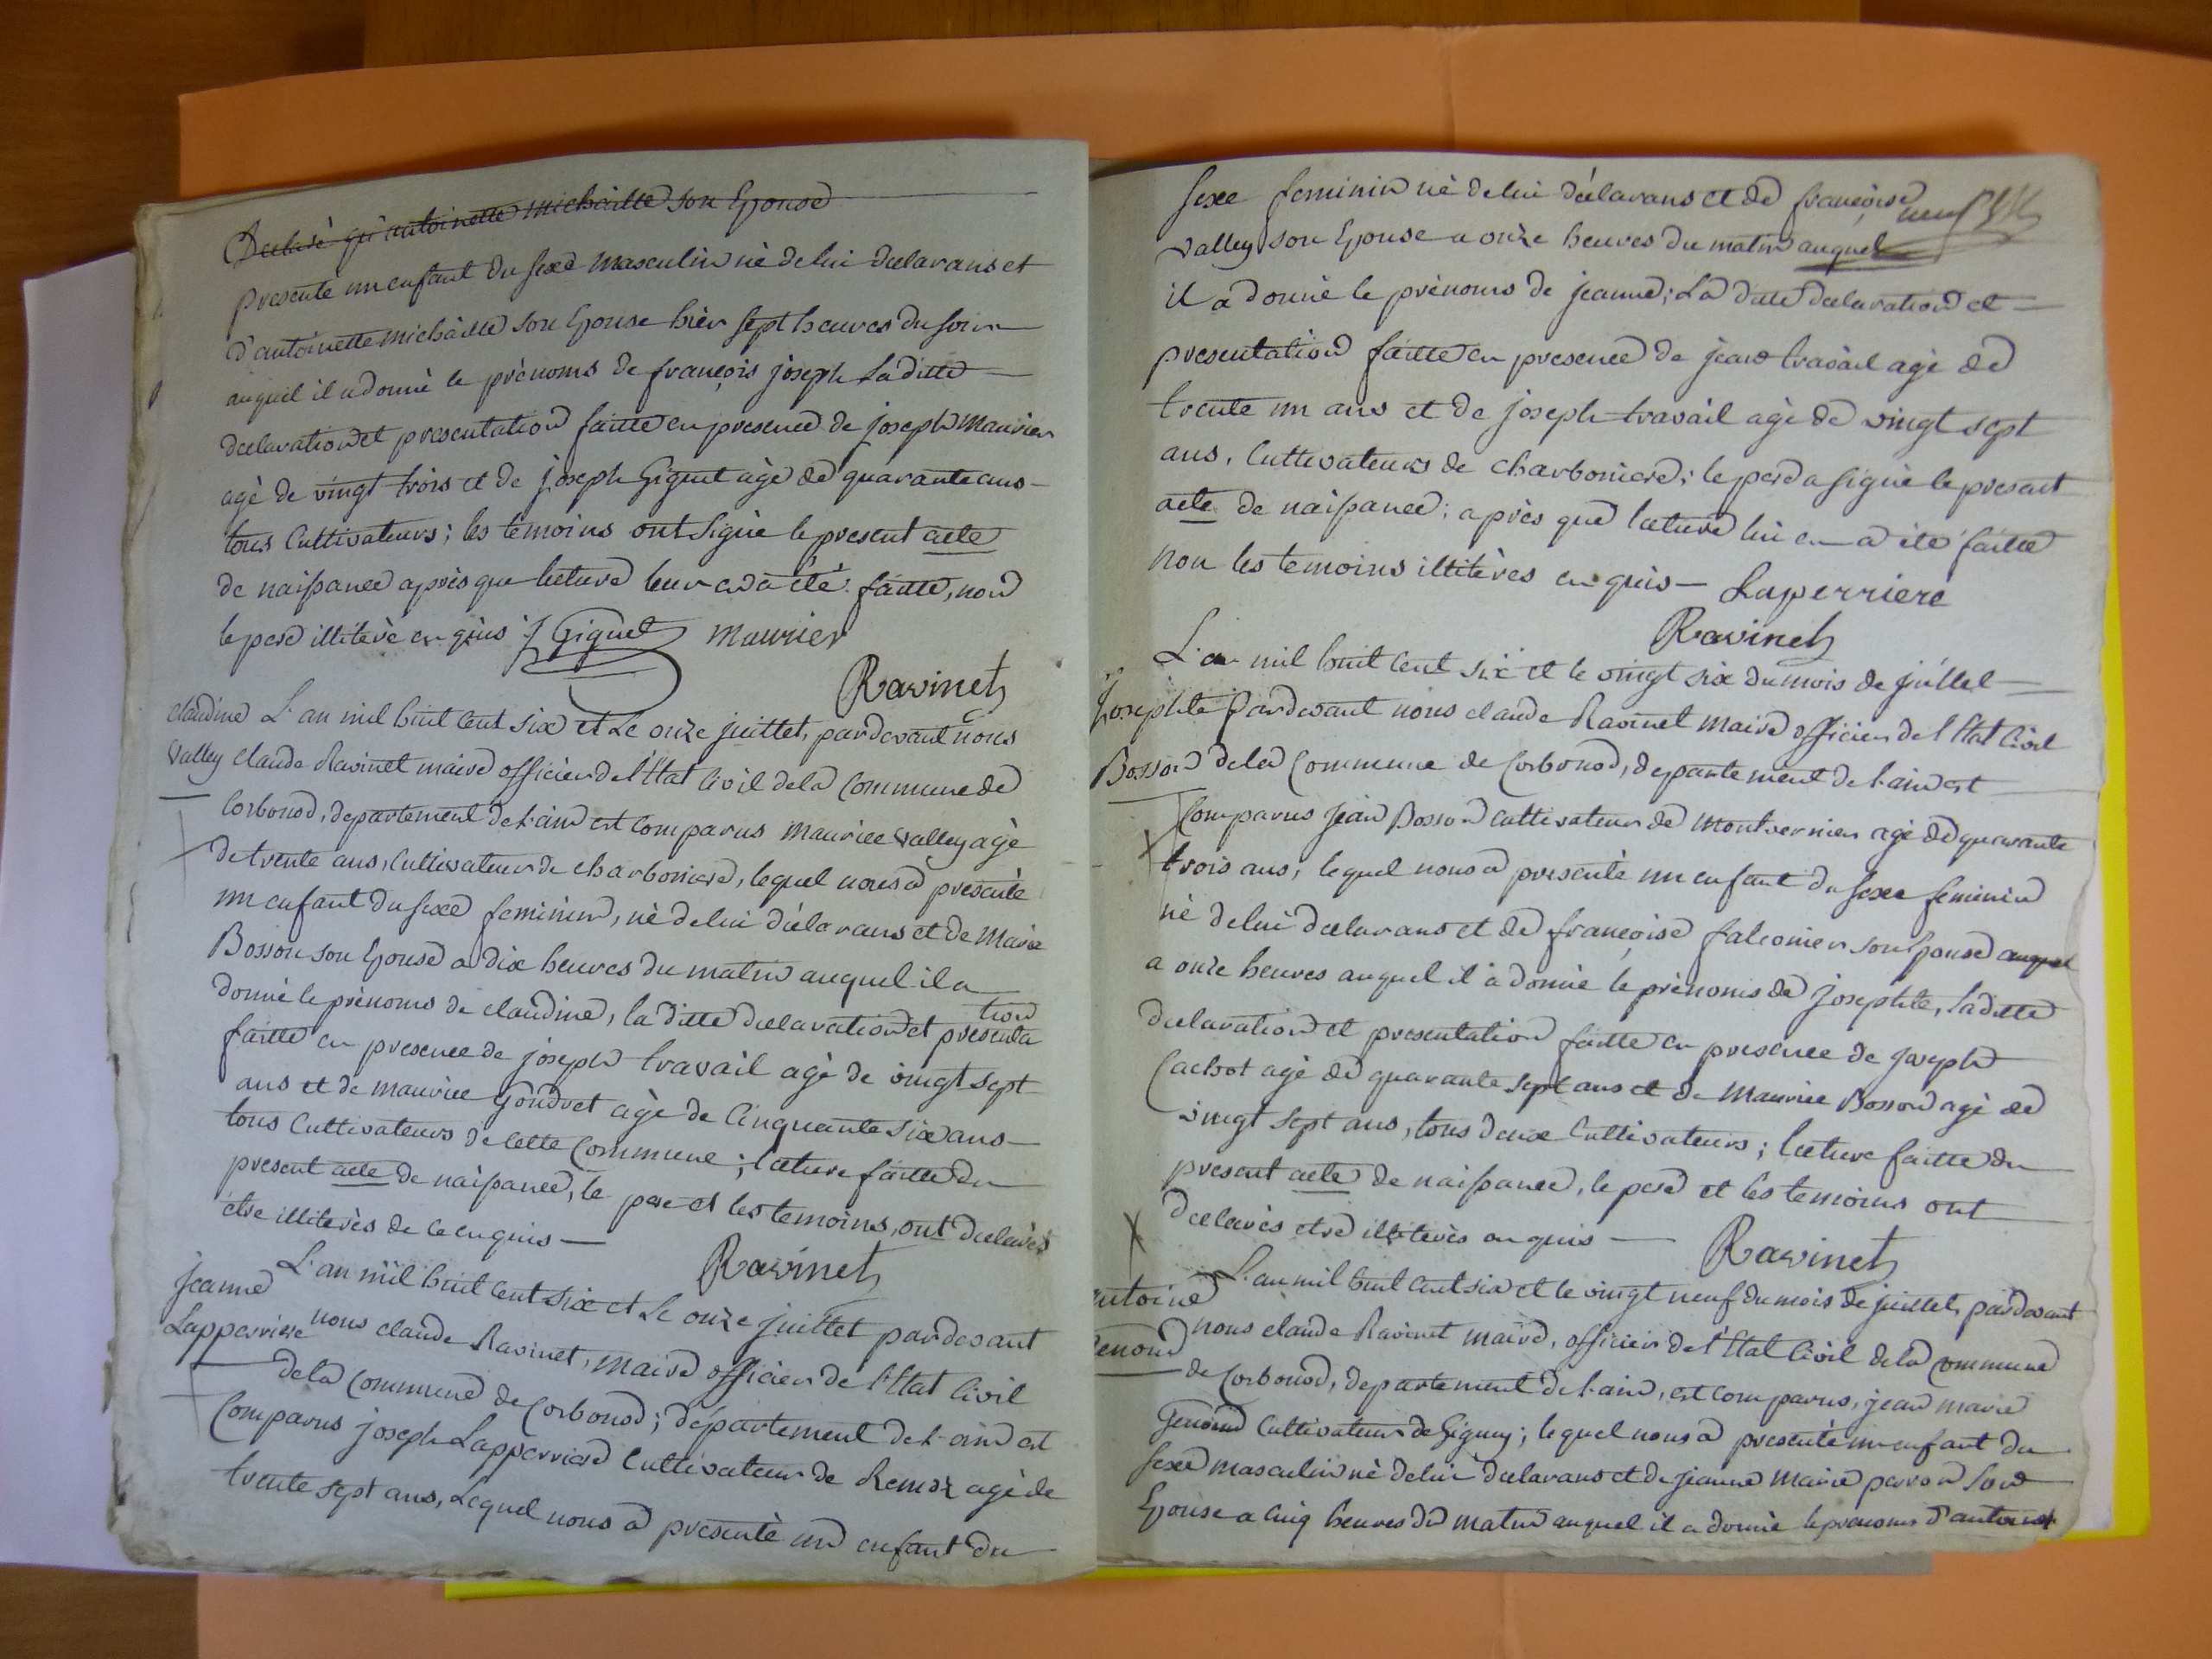 Declaré qu'antoinette michaille son Epouse
presente un enfant du sexe masculin né de lui declarans et
d'antoinette michaille son Epouse hièr sept heures du soir
auquel il a donné le prénoms de françois joseph Laditte
declaration et presentation faitte en presence de joseph Maurier
agé de vingt trois et de joseph Giguet agé de quarante ans
tous Cultivateurs; les temoins ont Signé le present acte
de naissance après que lecture leur en a été faitte, non
le pere illiteré enquis J Giguet Maurier
Ravinet
claudine L'an mil huit cent six et Le onze juillet, pardevant nous
Valley claude Ravinet maire officier de l'Etat Civil de la Commune de
Corbonod, departement de l'ain est Comparus Maurice Valley agé
de trente ans, Cultivateur de charboniere, lequel nous a presenté
un enfant du sexe feminin, né de lui déclarans et de Marie
Bosson son Epouse a dix heures du matin auquel il a
donné le prénoms de claudine, la ditte declaration et presenta
tion
faitte en presence de joseph travail agé de vingt sept
ans et de maurice Gondret agé de Cinquante six ans
tous Cultivateurs de Cette Commune; lecture faitte du
present acte de naissance, le pere et les temoins, ont declarés
etre illiterès de ce enquis
Ravinet
L'an mil huit cent six et Le onze juillet pardevant
Jeanne
Lapperriere nous claude Ravinet, maire officier de l'Etat Civil
de la Commune de Corbonod; département de l'ain est
Comparus joseph Lapperriere Cultivateur de Remoz agé de
trente sept ans, Lequel nous a presenté un enfant du
sexe feminin né de lui déclarans et de françoise
neuf
Valley son Epouse a onze heures du matin auquel
il a donné le prénoms de jeanne; La ditte declaration et
presentation faitte en presence de jean travail agé de
trente un ans et de joseph travail agé de vingt sept
ans, Cultivateurs de charboniere; le pere a signé le present
acte de naissance; après que lecture lui en a été faitte
non les temoins illitères enquis Laperriere
Ravinet
L'an mil huit cent six et le vingt six du mois de juillet
Josephte pardevant nous claude Ravinet maire officier de l'Etat Civil
Bosson de la Commune de Corbonod, departement de l'ain est
Comparus Jean Bosson Cultivateur de Montvernier agé de quarante
trois ans, lequel nous a presenté un enfant du sexe feminin
né de lui declarans et de françoise falconier son Epouse auquel
a onze heures auquel il a donné le prénoms de Josephte, laditte
declaration et presentation faitte en presence de joseph
Cachot agé de quarante sept ans et de Maurice Bosson agé de
vingt sept ans, tous deux Cultivateurs; lecture faitte du
present acte de naissance, le pere et les temoins ont
declarés etre illiterès enquis
Ravinet
L'an mil huit cent six et le vingt neuf du mois de juillet, pardevant
antoine
nous claude Ravinet maire, officier de l'Etat Civil de la Commune
enoud
de Corbonod, departement de l'ain, est Comparus, jean marie
Genoud Cultivateur de Gigney; lequel nous a presenté un enfant du
sexe masculin né de lui declarans et de jeanne Marie perron son
Epouse a cinq heures du matin auquel il a donné le prenoms d'antoine